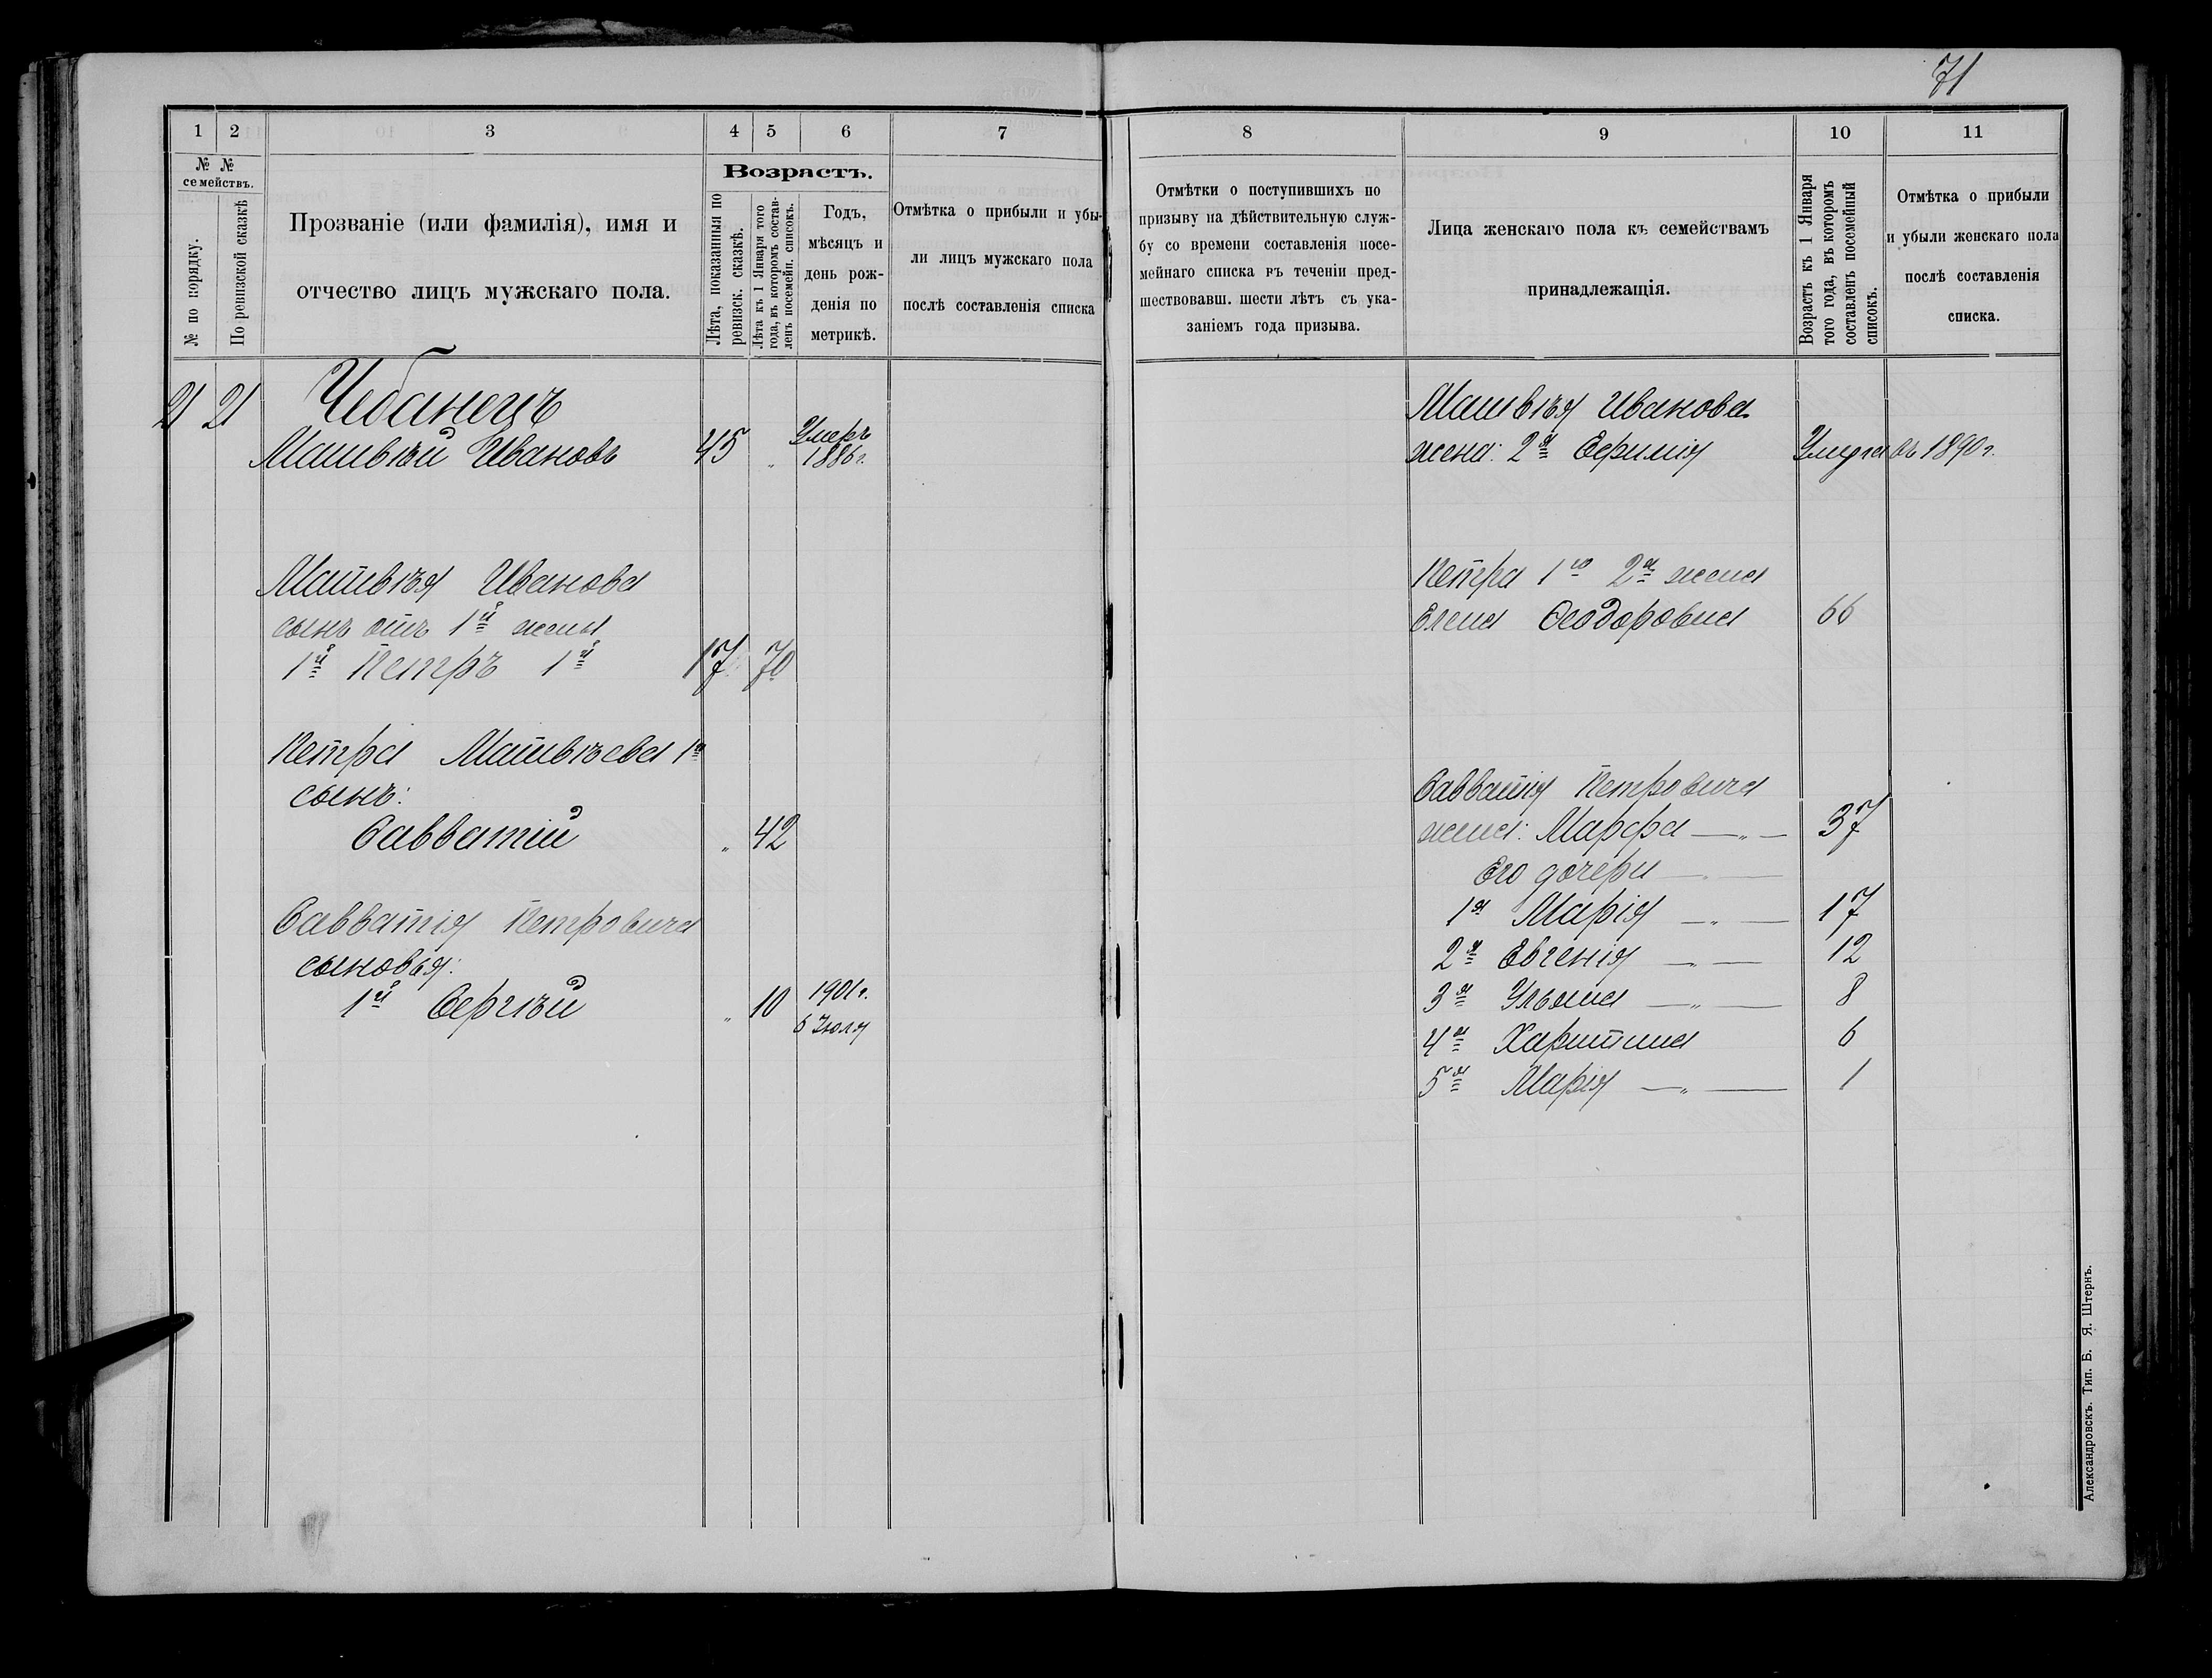 71
1
2
3
4
5
6
7
№ №
семействъ.
№ по порядку.
По ревизской сказкѣ
Прозваніе (или фамилія), имя и
отчество лицъ мужскаго пола.
Возрастъ.
Лѣта, показанныя по
ревизск. сказкѣ.
Лѣта къ 1 Января того
года, въ которомъ состав-
ленъ посемейн. списокъ.
Годъ,
мѣсяцъ и
день рож-
денія по
метрикѣ.
Отмѣтка о прибыли и убы-
ли лицъ мужскаго пола
послѣ составленія списка
21 21 Чебанецъ
Матвѣй Ивановъ 45 „ Умеръ
1886 г.
Матвѣя Иванова
сынъ отъ 1й жены
1й Петръ 1й 17 70
Петра Матвѣева 1го
сынъ:
Савватій „ 42
Савватія Петровича
сыновья:
1й Сергѣй „ 10 1901 г.
6 Іюля
8
9
10
11
Отмѣтки о поступившихъ по
призыву на дѣйствительную служ-
бу со времени составленія посе-
мейнаго списка въ теченіи пред-
шествовавш. шести лѣтъ съ ука-
заніемъ года призыва.
Лица женскаго пола къ семействамъ
принадлежащія.
Возрастъ къ 1 Января
того года, въ которомъ
составленъ посемейный
списокъ.
Отмѣтка о прибыли
и убыли женскаго пола
послѣ составленія
списка.
Матвѣя Иванова
жена: 2я Ефимія Умерла въ 1890 г.
Петра 1го 2я жена
Елена Ѳеодоровна 66
Савватія Петровича
жена: Марфа — „ — 37
Его дочери — „ —
1я Марія — „ — 17
2я Евгенія — „ — 12
3я Ульяна — „ — 8
4я Харитина 6
5я Марія — „ — 1
Александровскъ. Тип. Б. Я. Штернъ.